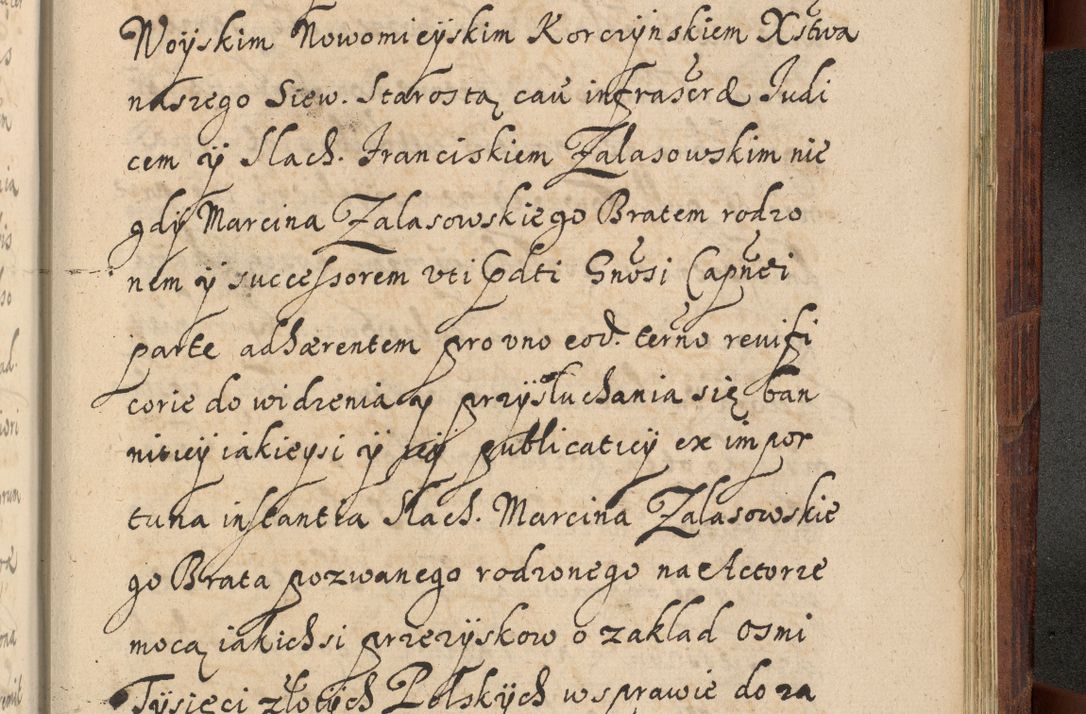 Woyskim Nowomieyskim Korczynskiem Xstwa
naszego Siew. Starostą cau infrascr& Judi
cem y Slach. Franciskiem Zalasowskim nie
gdy Marcina Zalasowskiego Bratem rodzo
nem y successorem vti Pdti Gnosi Capnei
parte adhærentem pro vno eod. terno reuifi
corie do widzenia y przysłuchania się ban
niticy iakieysi y iey publicaticy ex impor
tuna instantia Slach. Marcina Zalasowskie
go Brata pozwanego rodzonego na Actorze
mocą iakichsi przezyskow o zaklad osmi
Tysięci złotych Polskych w sprawie do za